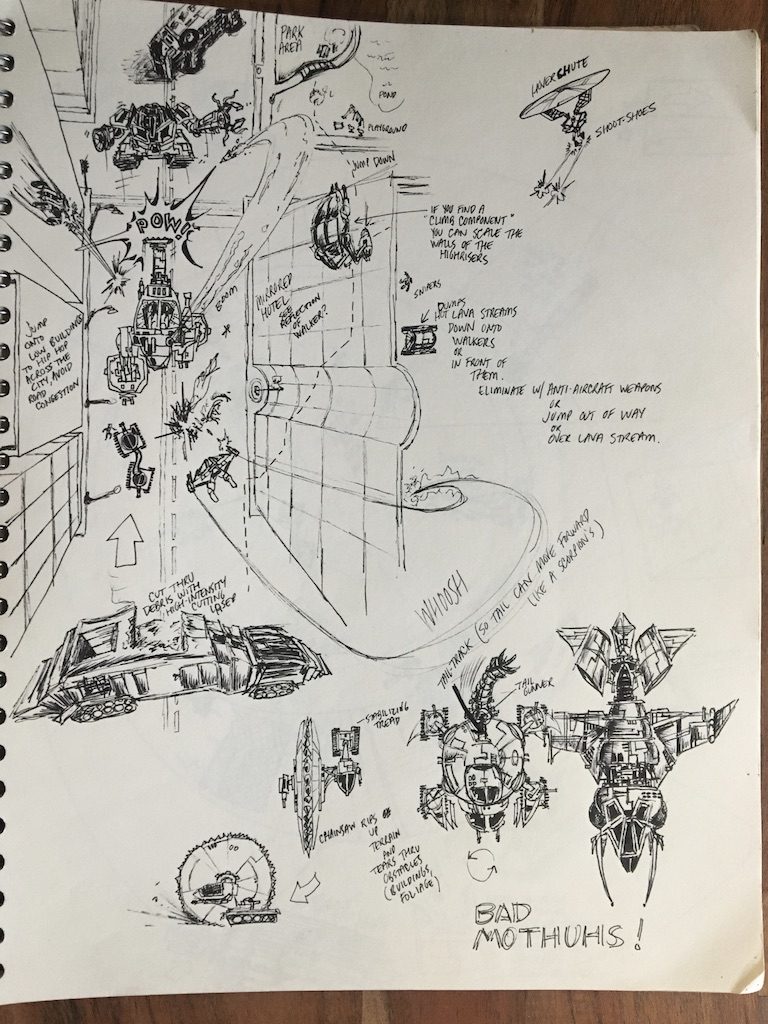 PARK
AREA
POND
PLAYGROUND
HOVERCHUTE
SHOOT-SHOES
JUMP DOWN
IF YOU FIND A
"CLIMB COMPONENT"
YOU CAN SCALE THE
WALLS OF THE
HIGHRISERS
POW!
BOOM
MIRRORED
HOTEL
SEE
REFLECTION
OF
WALKER?
SNIPERS
DUMPS
HOT LAVA STREAMS
DOWN ONTO
WALKERS
OR
IN FRONT OF
THEM.
ELIMINATE W/ ANTI-AIRCRAFT WEAPONS
OR
JUMP OUT OF WAY
OR
OVER LAVA STREAM.
JUMP
ONTO
LOW BUILDINGS
TO HIP HOP
ACROSS THE
CITY, AVOID
ROAD
CONGESTION
CUT THRU
DEBRIS WITH
HIGH-INTENSITY
CUTTING
LASER
WHOOSH
TAIL-TRACK (SO TAIL CAN MOVE FORWARD
(LIKE A SCORPION'S)
TAIL
GUNNER
STABILIZING
TREAD
CHAINSAW RIPS
UP
TERRAIN
AND
TEARS THRU
OBSTACLES
(BUILDINGS,
FOLIAGE)
BAD
MOTHUHS!